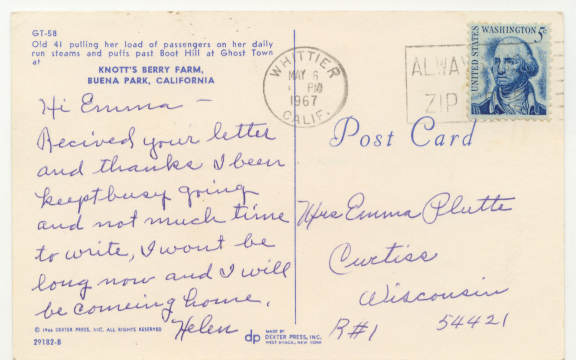 GT-58
Old 41 pulling her load of passengers on her daily
run steams and puffs past Boot Hill at Ghost Town
at
KNOTT'S BERRY FARM,
BUENA PARK, CALIFORNIA
Hi Emma —
Recived your letter
and thanks I been
keept busy going
and not much time
to write, I wont be
long now and I will
be comeing home,
Helen
© 1966 DEXTER PRESS, INC. ALL RIGHTS RESERVED
29182-B
dp
MADE BY
DEXTER PRESS, INC.
WEST NYACK, NEW YORK
WHITTIER
MAY 6
PM
1967
CALIF.
ALWAY
ZIP
UNITED STATES
WASHINGTON 5c
Post Card
Mrs Emma Plutte
Curtiss
Wisconsin
R#1 54421